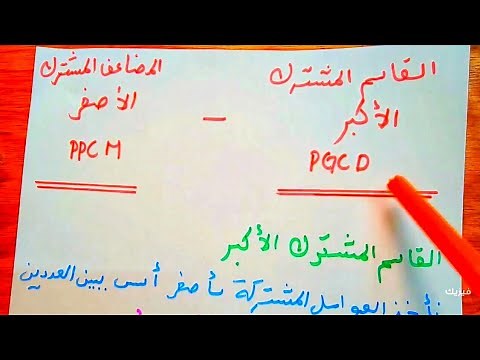 القاسم المشترك
الأكبر
PGCD
–
المضاعف المشترك
الأصغر
PPCM
القاسم المشترك الأكبر
نأخذ العوامل المشتركة بأصغر أس بين العددين
فيزيك